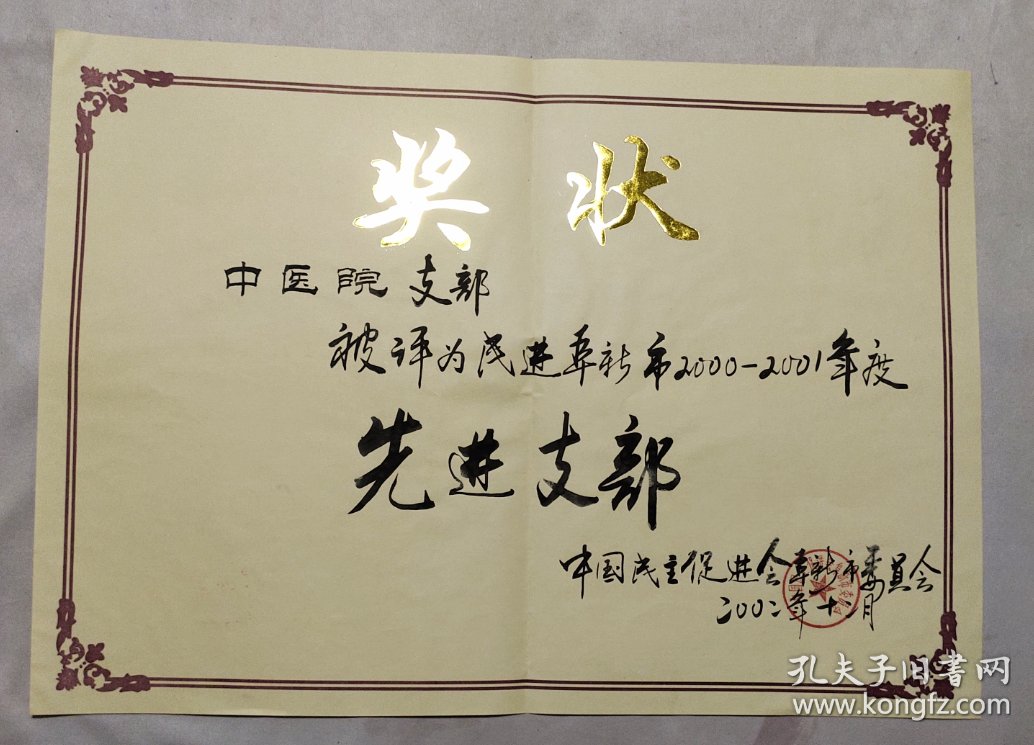 奖状
中医院 支部
被评为民进阜新市2000-2001年度
先进支部
中国民主促进会阜新市委员会
二00二年十二月
孔夫子旧書网
www.kongfz.com